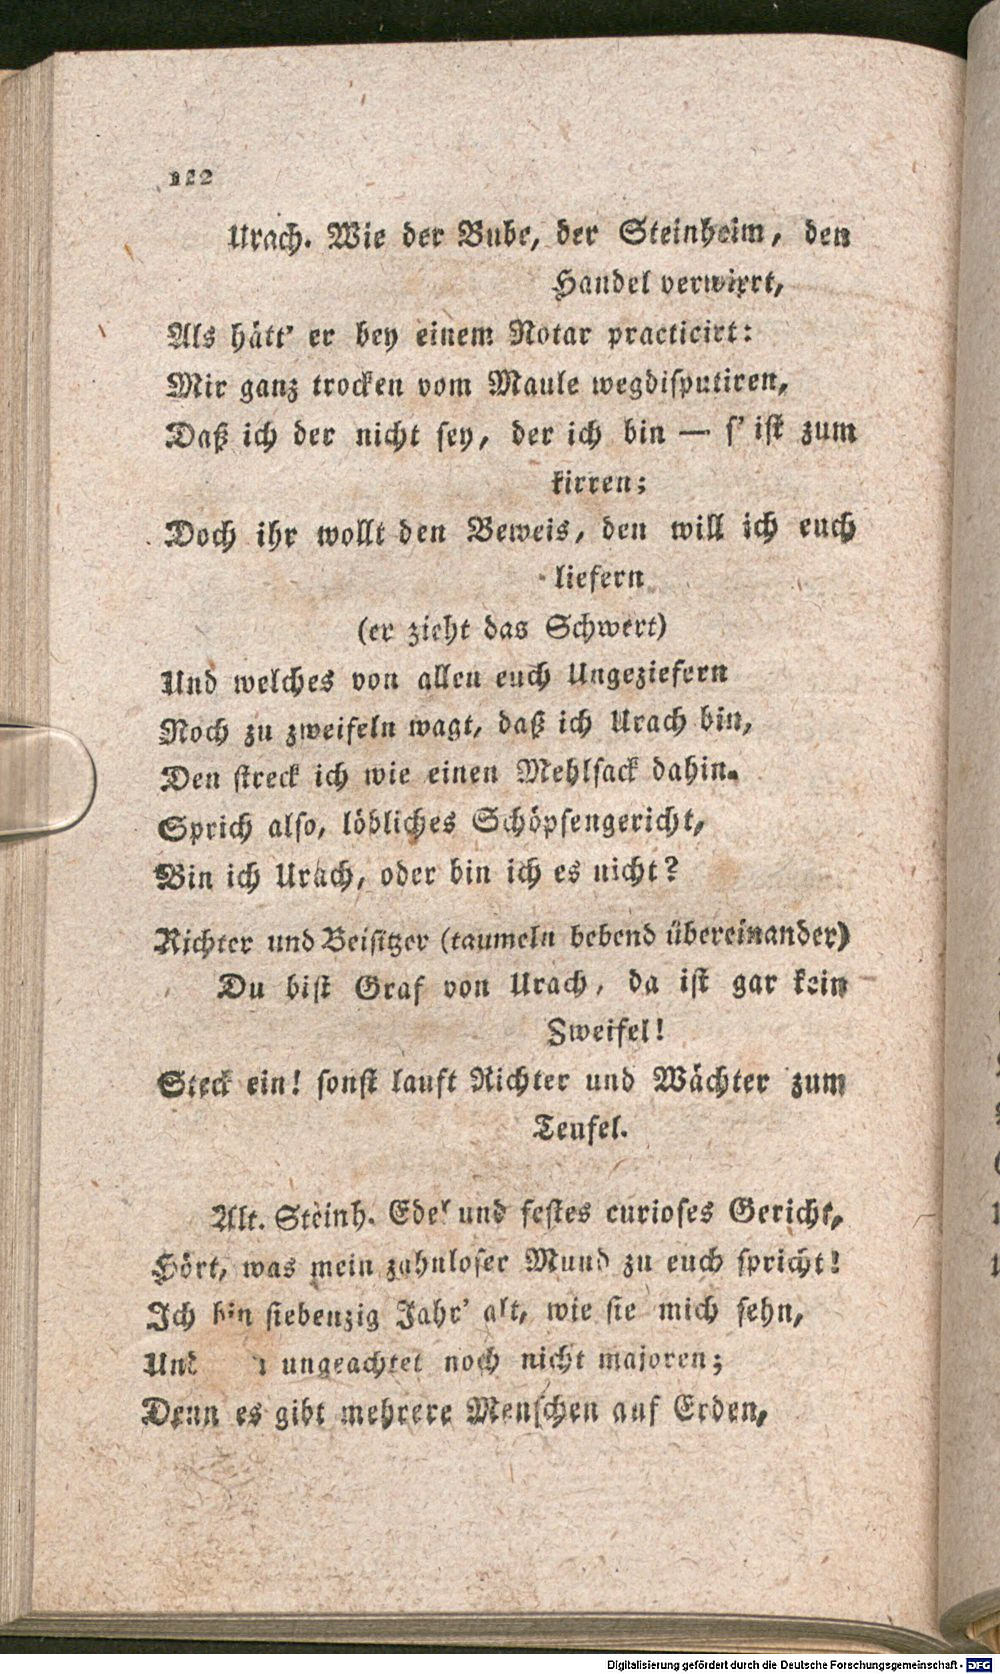 122
Urach. Wie der Bube, der Steinheim, den
Handel verwirrt,
Als hätt' er bey einem Notar practicirt:
Mir ganz trocken vom Maule wegdisputiren,
Daß ich der nicht sey, der ich bin — s' ist zum
kirren;
Doch ihr wollt den Beweis, den will ich euch
liefern
(er zieht das Schwert)
Und welches von allen euch Ungeziefern
Noch zu zweifeln wagt, daß ich Urach bin,
Den streck ich wie einen Mehlsack dahin.
Sprich also, löbliches Schöpsengericht,
Bin ich Urach, oder bin ich es nicht?
Richter und Beisitzer (taumeln bebend übereinander)
Du bist Graf von Urach, da ist gar kein
Zweifel!
Steck ein! sonst lauft Richter und Wächter zum
Teufel.
Alt. Steinh. Edel und festes curioses Gericht,
Hört, was mein zahnloser Mund zu euch spricht!
Ich bin siebenzig Jahr' alt, wie sie mich sehn,
Und ungeachtet noch nicht majoren;
Denn es gibt mehrere Menschen auf Erden,
Digitalisierung gefördert durch die Deutsche Forschungsgemeinschaft - DFG